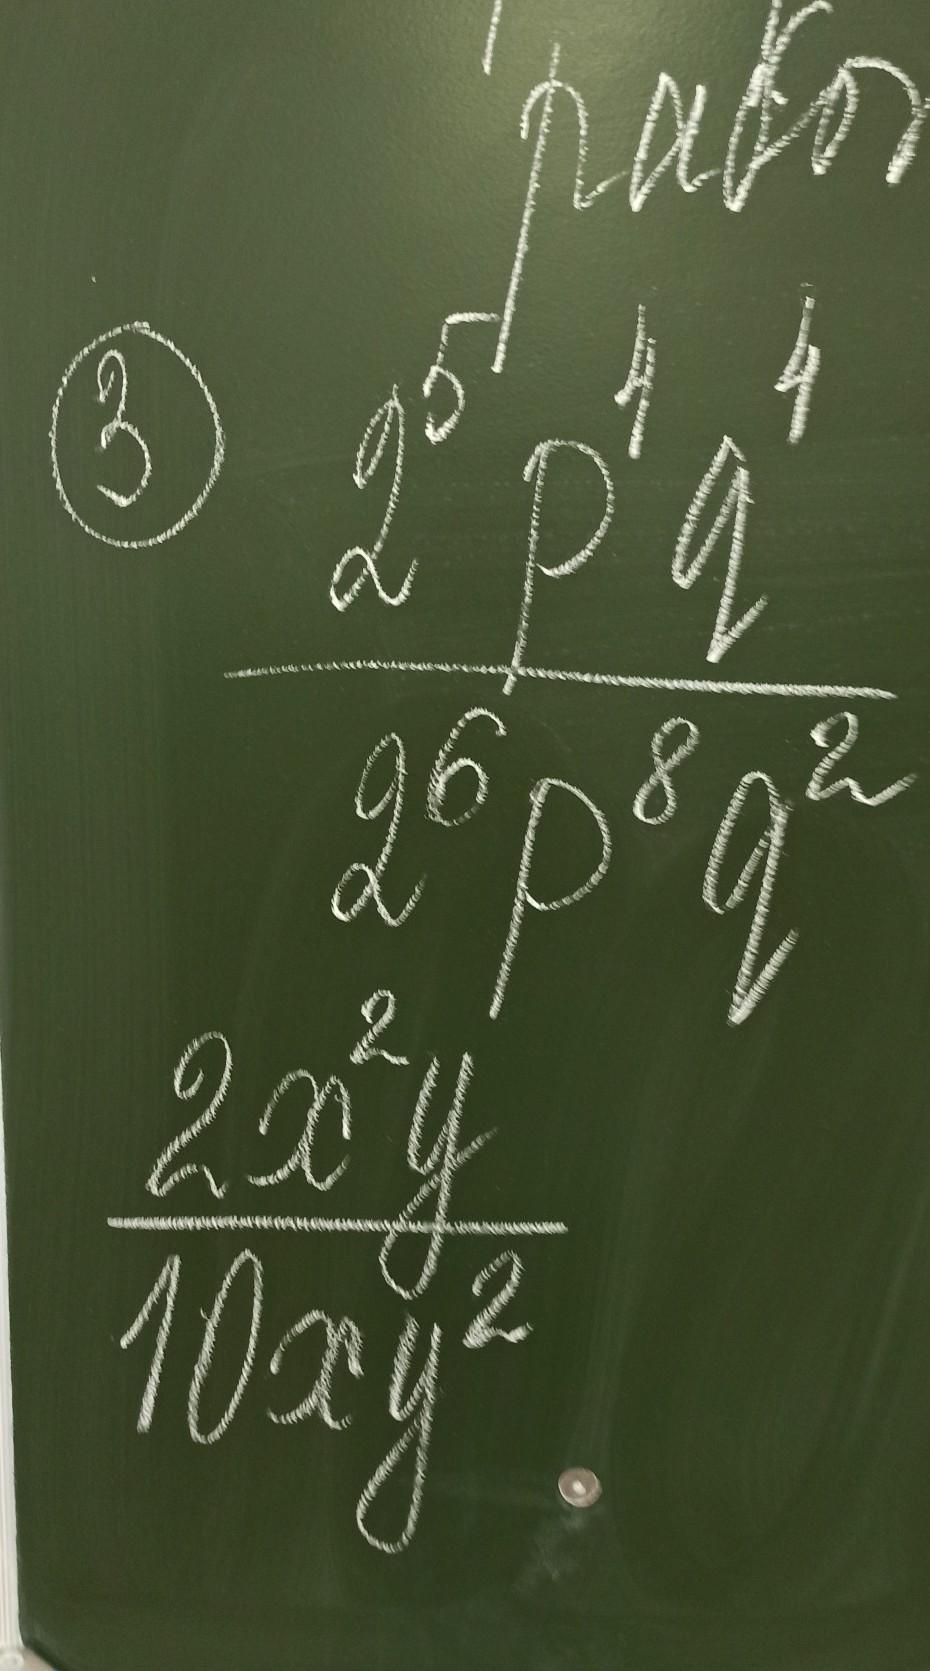 3
2⁵p⁴q⁴
2⁶p⁸q²
2x²y
10xy²